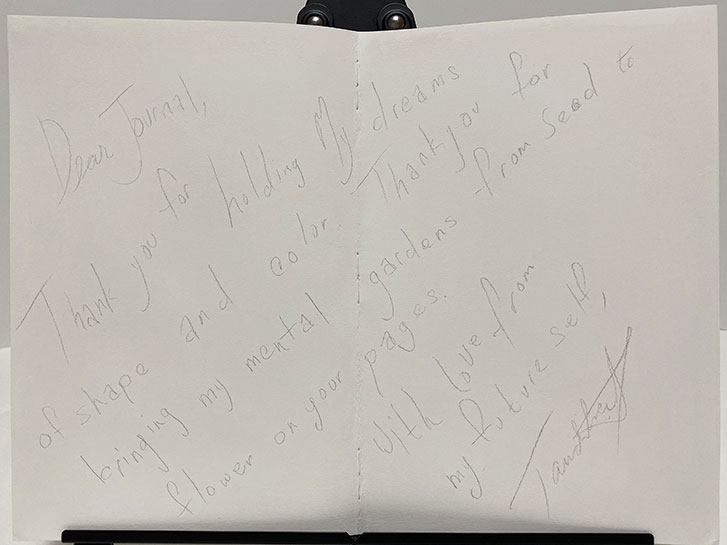 Dear Journal,
Thank you for holding My dreams
of shape and color. Thank you for
bringing my mental gardens from seed to
flower on your pages.
With love from
my future self,